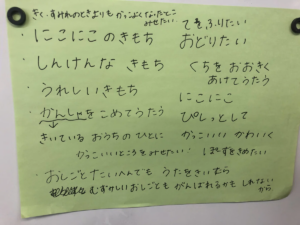 きく、すみれのときよりもかっこよくなったとこ
みせたい
・にこにこのきもち
・しんけんな きもち
・うれしいきもち
・かんしゃをこめてうたう
きいている おうちのひとに
かっこいいところをみせたい!
てをふりたい
おどりたい
くちをおおきく
あけてうたう
にこにこ
ぴしっとして
かっこいい かわいく
ぽーずをきめたい
・おしごとたいへんでも うたをきいたら
むずかしいおしごとも がんばれるかも しれない
から